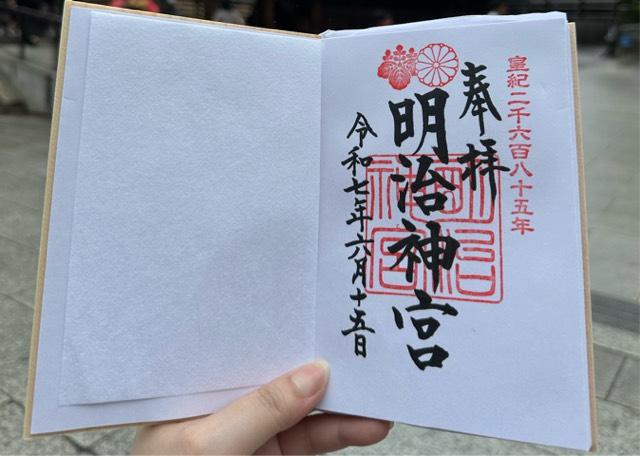 皇紀二千六百八十五年
奉拝
明治神宮
明治神宮
令和七年六月十五日